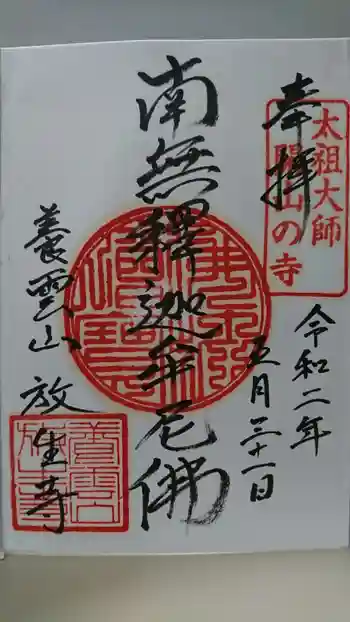 奉拝
太祖大師
開山の寺
令和二年
五月三十一日
南無釋迦牟尼佛
養雲山
放生寺